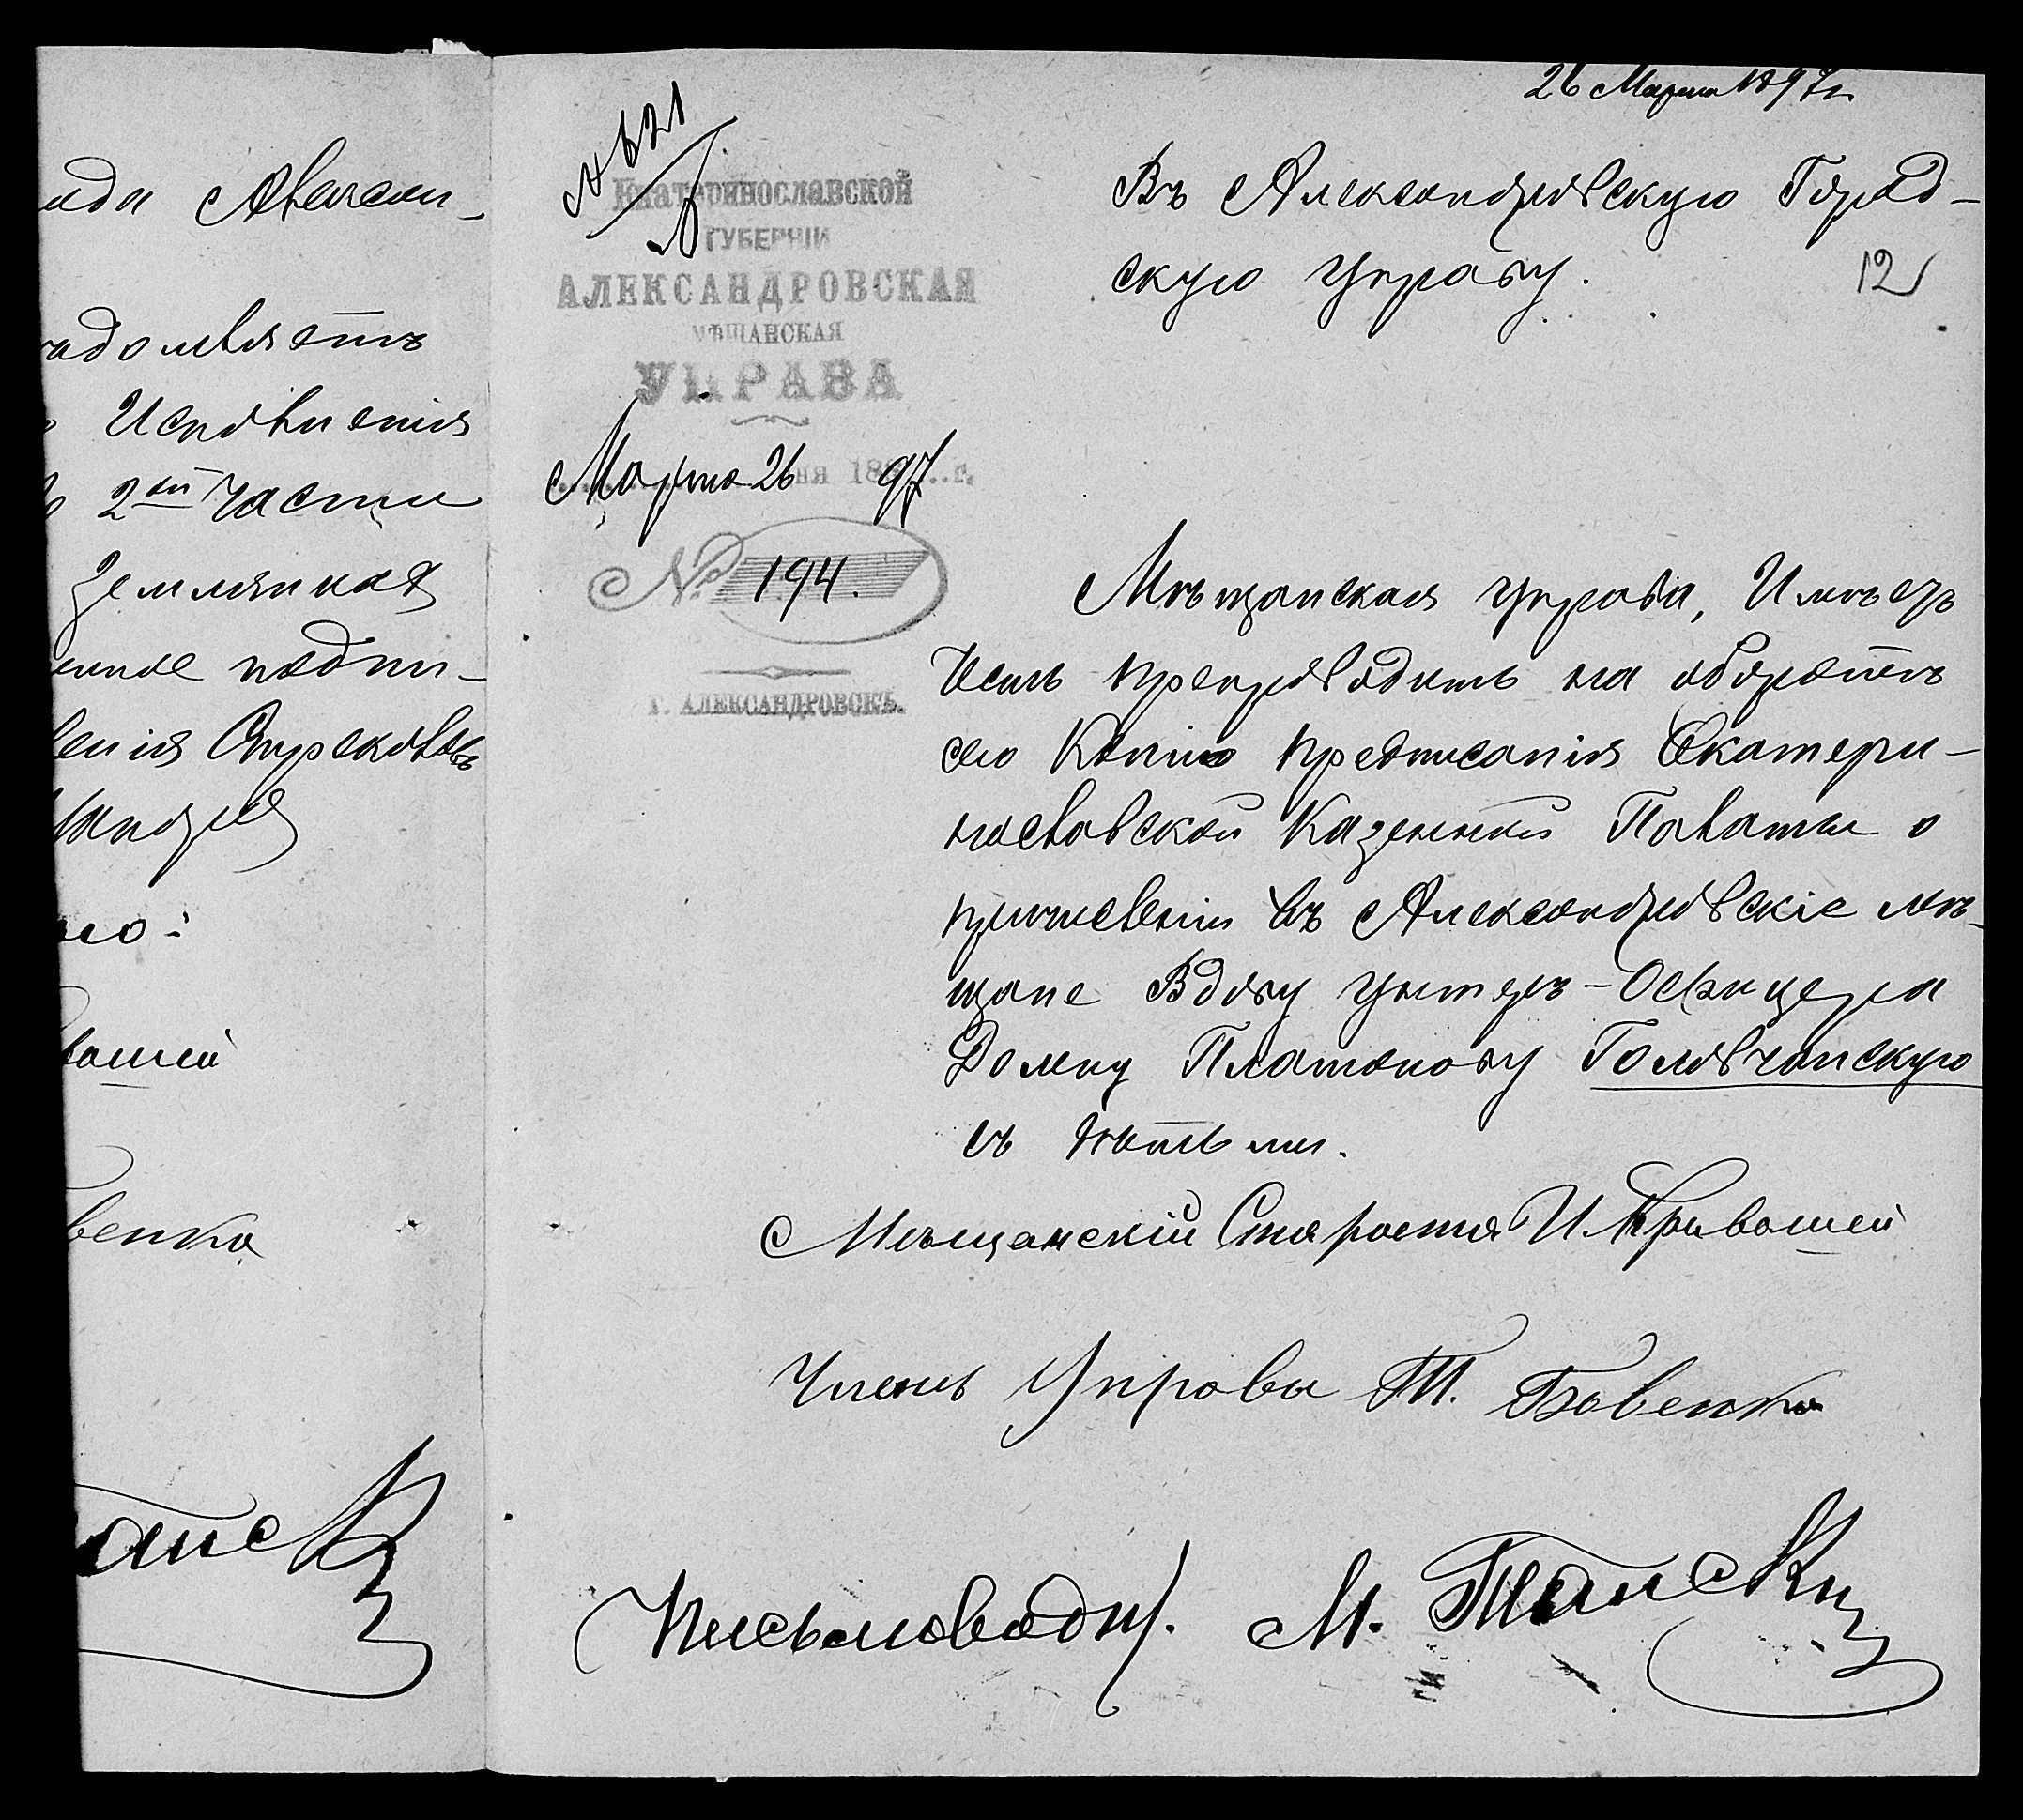 ада Алексан-
надомляетъ
Исполненія
2ой Части
Землянкая
енное подпи-
ленія Стрековъ
ною:
вошей
венко
анск
26 Марта 1897 г.
№ 621
Екатеринославской
ГУБЕРНІИ
АЛЕКСАНДРОВСКАЯ
МѢЩАНСКАЯ
УПРАВА
Марта 26 дня 1897 г.
№ 194.
Г. АЛЕКСАНДРОВСКЪ.
Въ Александровскую Город-
скую Управу.
12
Мѣщанская Управа, Имѣетъ
честь препроводить на оборотѣ
сего Копію предписанія Екатери-
нославской Казенной Палаты о
причисленіи въ Александровскіе мѣ-
щане Вдову Унтеръ-Офицера
Домну Платонову Головчанскую
съ дѣтьми.
Мѣщанскій Староста И. Кривошей
Членъ Управы Т. Бовенко
Письмоводит. М. Танскі